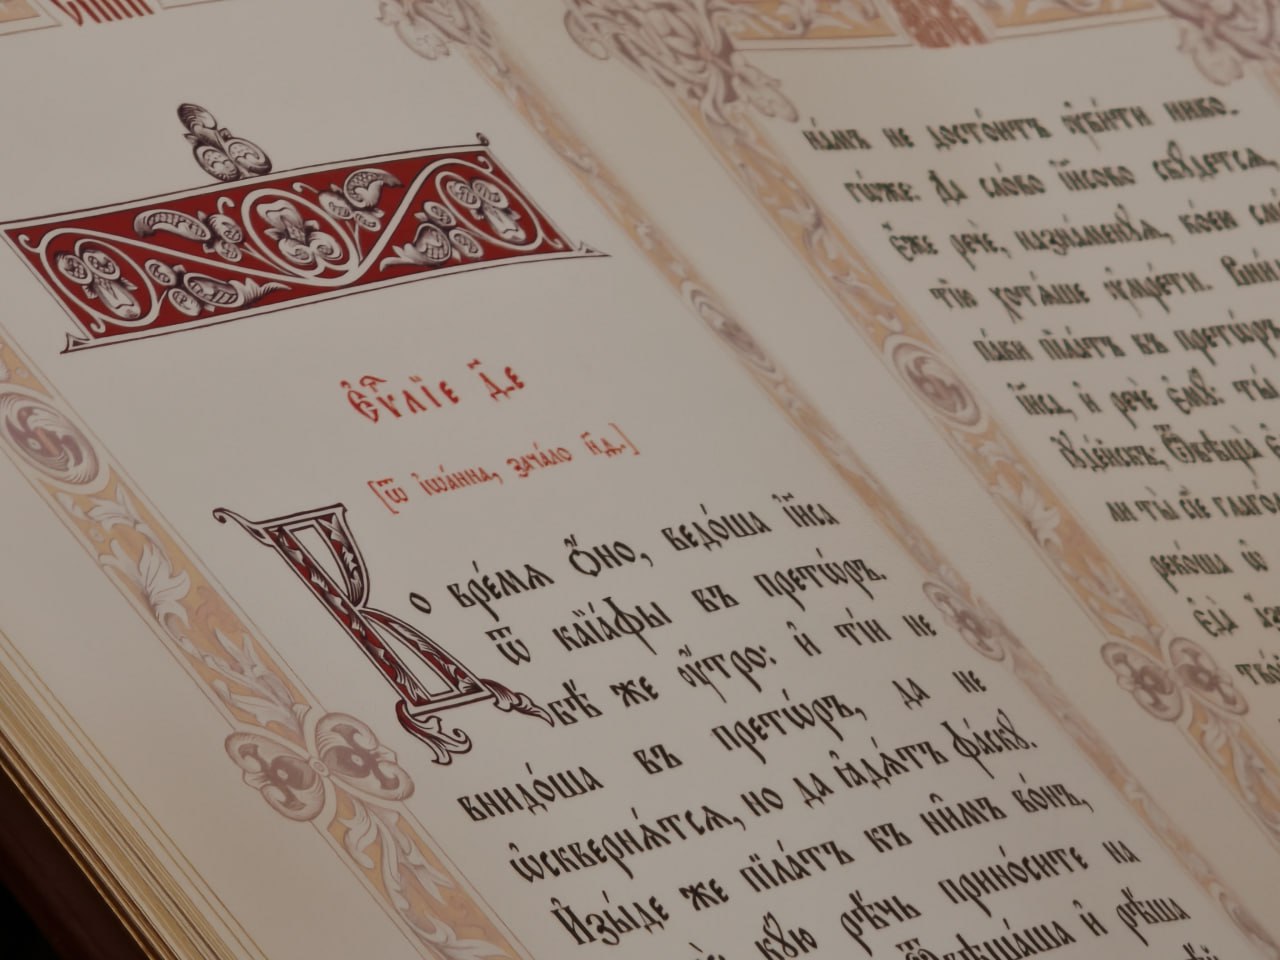 Є҆ѵⷢ҇лїе д҃-е
[Ѿ і҆ѡа́нна, зача́ло н҃д.]
Во вре́мѧ ѻ҆́но, ведо́ша і҆и҃са
ѿ каїа́фы въ прето́ръ.
бѣ́ же ᲂу҆́тро: и҆ ті́и не
внидо́ша въ прето́ръ, да не
ѡ҆сквернѧ́тсѧ, но да ꙗ҆дѧ́тъ фа́скꙋ.
И҆зы́де же пїла́тъ къ ни̑мъ во́нъ,
кꙋ́ю рѣ́чь прино́сите на
Ѿвѣща́ша и҆ рѣ́ша
на́мъ не досто́итъ ᲂу҆би́ти нико-
гѡ́же: Да сло́во і҆и҃сово сбꙋ́детсѧ,
є҆́же речѐ, назна́менꙋѧ, ко́ею
тїю хотѧ́ше ᲂу҆мре́ти.
па́ки пїла́тъ въ прето́ръ
і҆и҃са, и҆ речѐ є҆мꙋ̀: ты́
і҆ꙋде́йскъ; Ѿвѣща̀
ли ты̀ сїѐ
реко́ша ѡ҆
є҆да̀